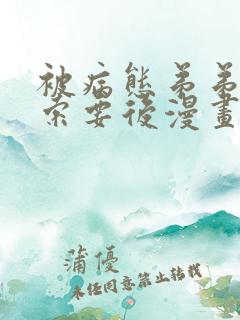 被病態弟弟
索要後漫畫
蒲優
未經同意禁止轉載